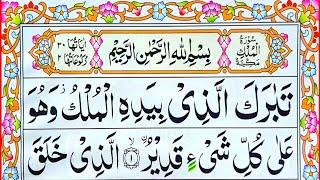 سُوْرَةُ الْمُلْكِ مَكِّيَّةٌ
بِسْمِ اللّٰهِ الرَّحْمٰنِ الرَّحِيْمِ
اٰيَاتُهَا ٣٠ رُكُوْعَاتُهَا ٢
تَبٰرَكَ الَّذِىْ بِيَدِهِ الْمُلْكُ وَهُوَ
عَلٰى كُلِّ شَىْءٍ قَدِيْرُ ۙ﴿۱﴾ الَّذِىْ خَلَقَ